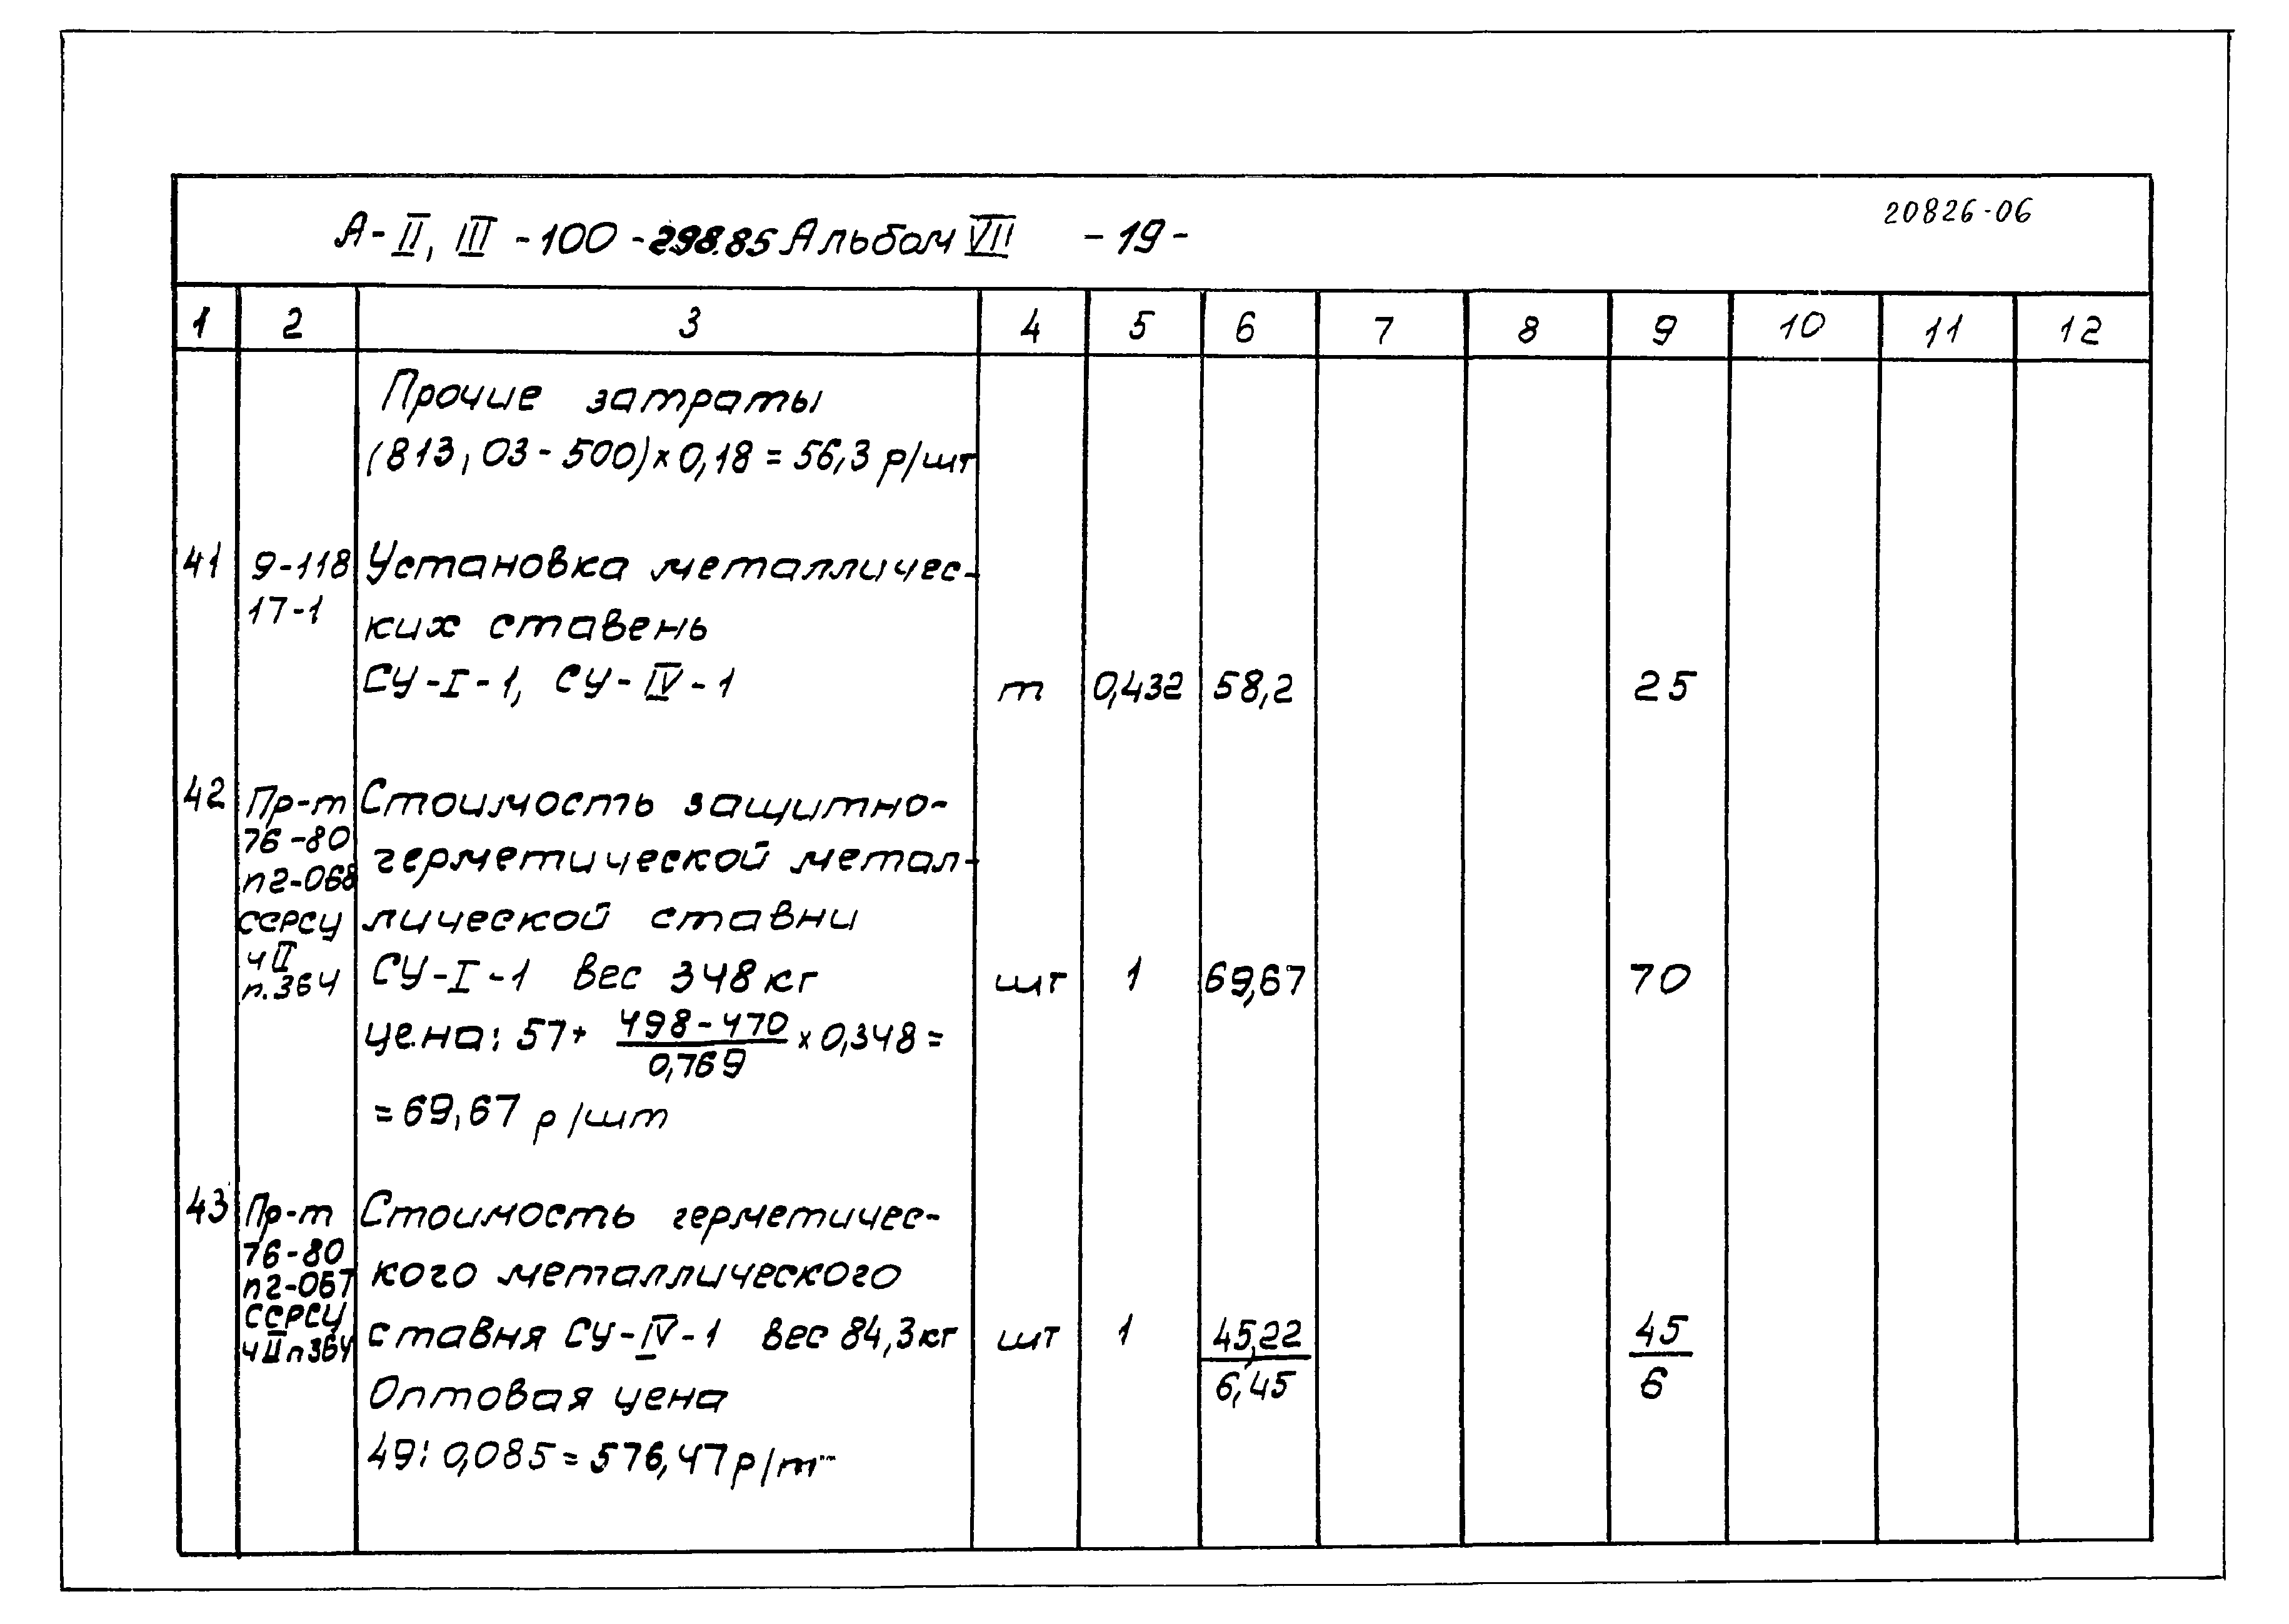 20826-06
А-II, III -100 -298.85 Альбом VII -19-
1 2 3 4 5 6 7 8 9 10 11 12
Прочие затраты
(813,03-500)×0,18 = 56,3 р/шт
41 9-118 Установка металличес-
17-1 ких ставень
СУ-I-1, СУ-IV-1 т 0,432 58,2 25
42 Пр-т Стоимость защитно-
76-80 герметической метал-
п2-068
ССРСЦ лической ставни
ч II
п.364 СУ-I-1 вес 348 кг шт 1 69,67 70
цена: 57+ 498-470 / 0,769 × 0,348 =
= 69,67 р/шт
43 Пр-т Стоимость герметичес-
76-80
п2-067 кого металлического
ССРСЦ
ч II п364 ставня СУ-IV-1 вес 84,3 кг шт 1 45,22 / 6,45 45 / 6
Оптовая цена
49:0,085 = 576,47 р/т